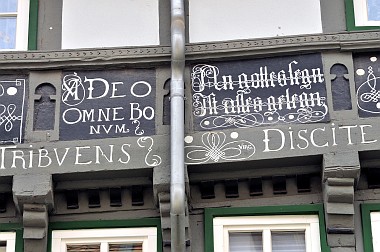 A DEO
OMNE BO
NVM
An gottes segn
Ist alles gelegn
TRIBVENS
DISCITE